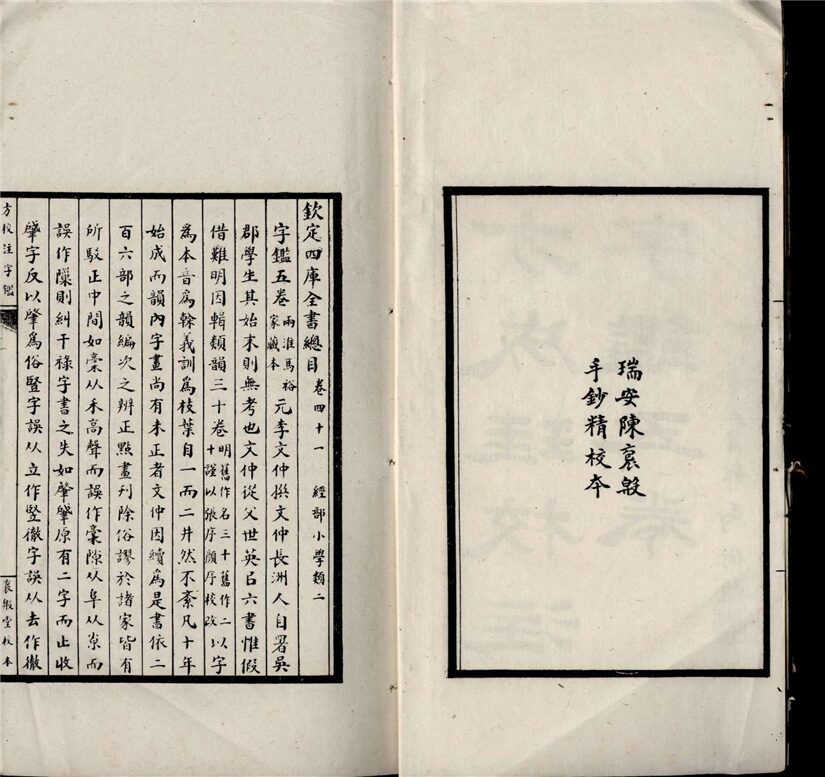 瑞安陳襄殷
手鈔精校本
欽定四庫全書總目 卷四十一 經部小學類二
字鑑五卷 兩淮馬裕家藏本 元李文仲撰文仲長洲人自署吳
郡學生其始末則無考也文仲從父世英以六書惟假
借難明因輯類韻三十卷 明舊作名三十舊作二十謹以張序顏序校改 以字
為本音爲榦義訓爲枝葉自一而二井然不紊凡十年
始成而韻內字畫尚有未正者文仲因續爲是書依二
百六部之韻編次之辨正點畫刊除俗謬於諸家皆有
所駁正中間如稾从禾高聲而誤作藁隙从阜从㡭而
誤作隟則糾干祿字書之失如肇肈原有二字而止收
肈字反以肇爲俗豎字誤从立作竪徹字誤从去作徹
方校注字鑑
襄殷堂校本